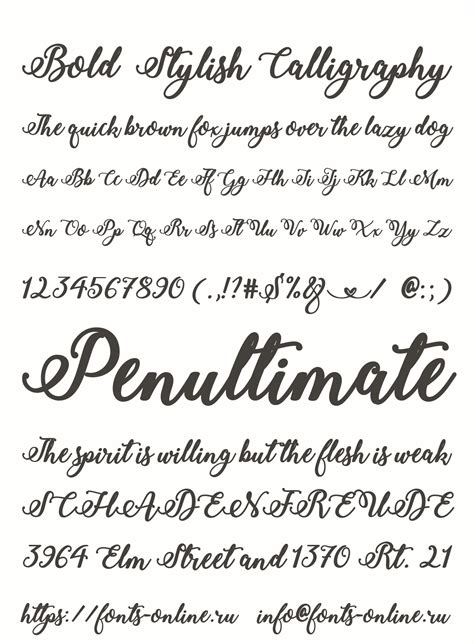 Bold Stylish Calligraphy
The quick brown fox jumps over the lazy dog
Aa Bb Cc Dd Ee Ff Gg Hh Ii Jj Kk Ll Mm
Nn Oo Pp Qq Rr Ss Tt Uu Vv Ww Xx Yy Zz
1234567890 (.,!?#$%&_/ @:;)
Penultimate
The spirit is willing but the flesh is weak
SCHADENFREUDE
3964 Elm Street and 1370 Rt. 21
https://fonts-online.ru info@fonts-online.ru